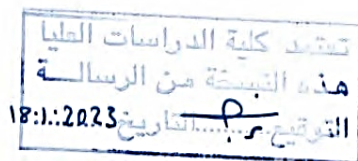 تعتمد كلية الدراسات العليا
هذه النسخة من الرسالــة
التوقيع.........التاريخ 18:1.:2023